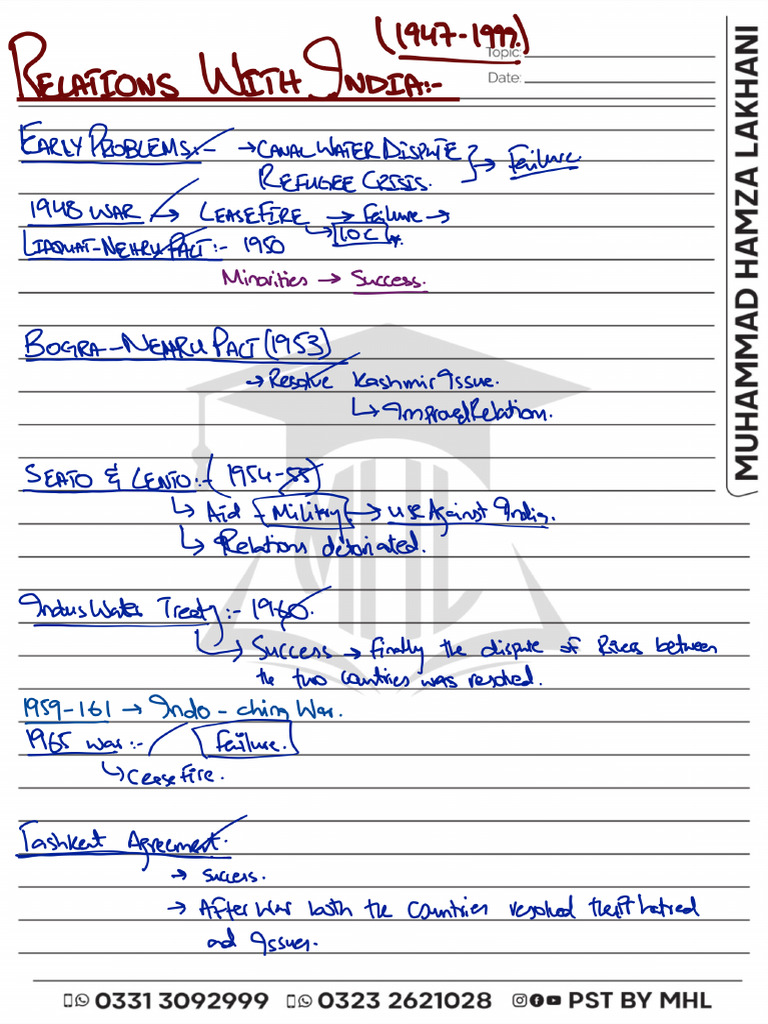 (1947-1999)
Topic:
RELATIONS WITH INDIA:-
Date:
EARLY PROBLEMS:- → CANAL WATER DISPUTE
REFUGEE CRISIS. } → Failure
1948 WAR → CEASEFIRE → Failure →
↳ LOC
LIAQUAT-NEHRU PACT:- 1950
Minorities → Success.
BOGRA-NEHRU PACT (1953)
→ Resolve Kashmir Issue.
↳ Improved Relation.
SEATO & CENTO:- (1954-55)
↳ Aid - Military → use Against India.
↳ Relations detoriated.
Indus Water Treaty:- 1960.
↳ Success → Finally the dispute of Rivers between
the two countries was resolved.
1959-161 → Indo - China War.
1965 war:- Failure.
↳ Ceasefire.
Tashkent Agreement.
→ Success.
→ After War both the Countries resolved their hatred
and Issues.
MUHAMMAD HAMZA LAKHANI
MHL
0331 3092999 0323 2621028 PST BY MHL